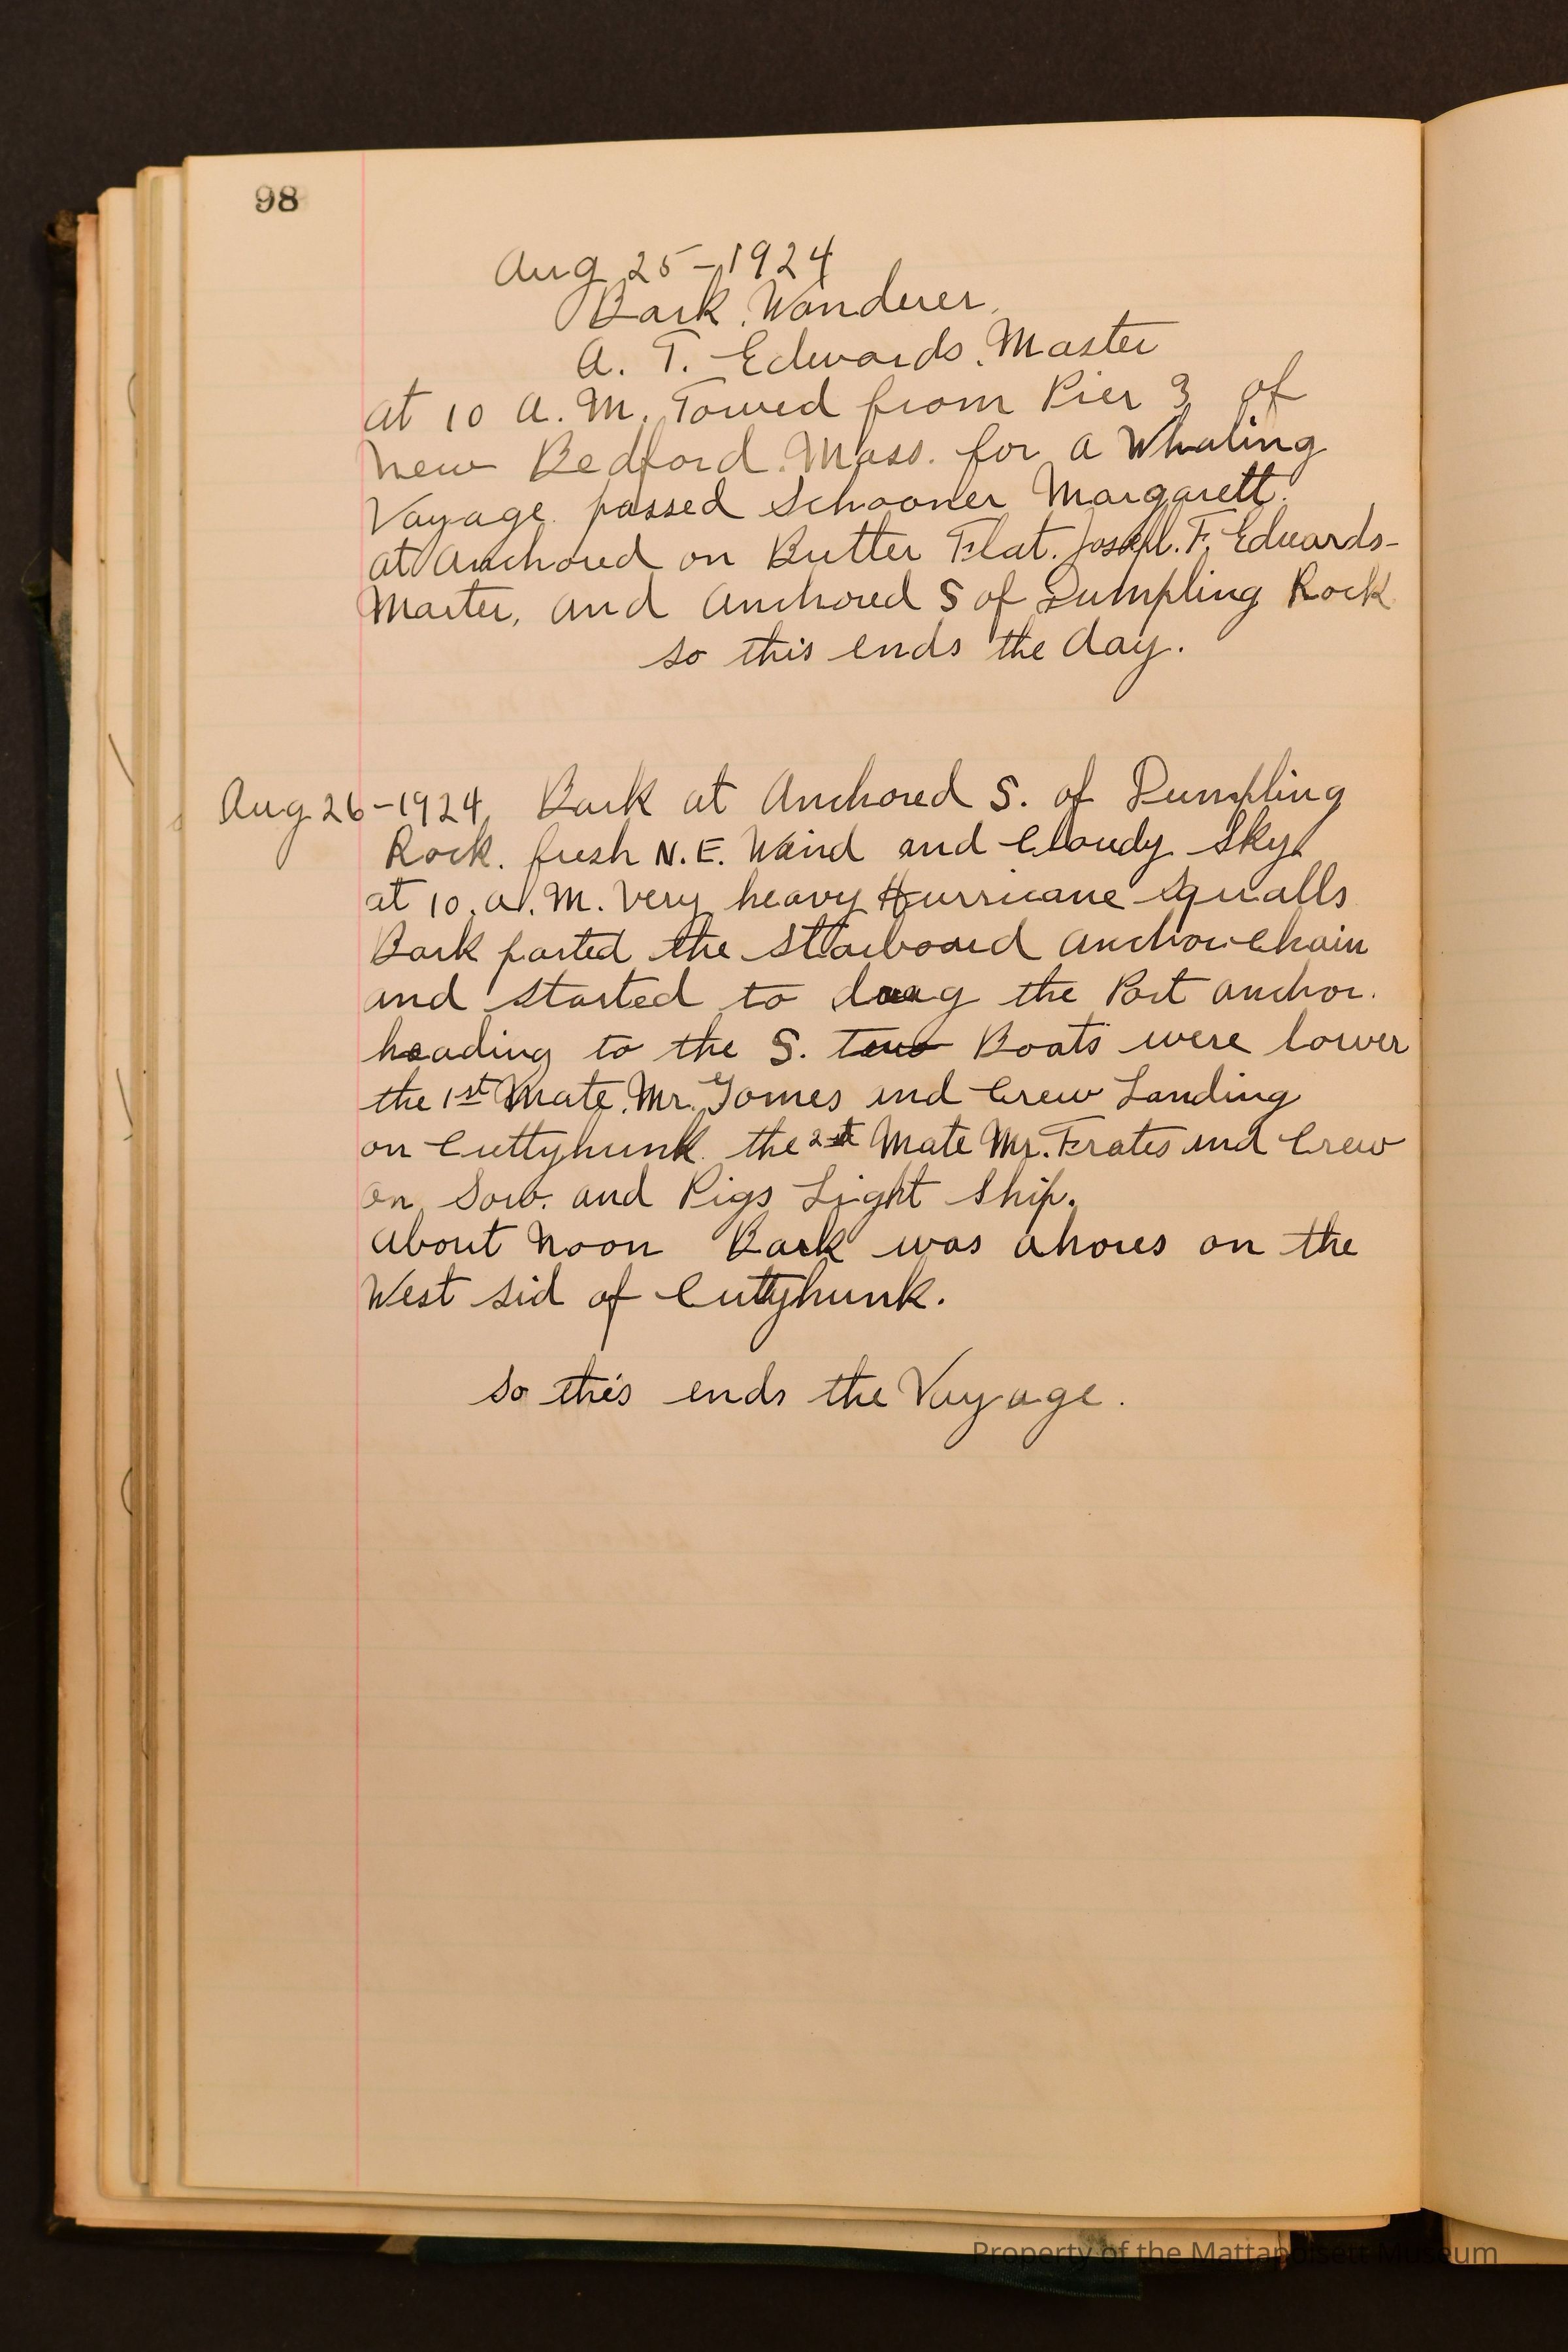 98
Aug 25-1924
Bark. Wanderer.
A. T. Edwards. Master
at 10 A.M. Towed from Pier 3 of
New Bedford. Mass. for a Whaling
Voyage. passed Schooner Margarett.
at Anchored on Butter Flat. Joseph. F. Edwards-
Master, and Anchored S of Dumpling Rock
so this ends the day.
Aug 26-1924, Bark at Anchored S. of Dumpling
Rock. fresh N.E. Wind and Cloudy Sky
at 10. A.M. Very heavy Hurricane Squalls
Bark parted the Starboard anchor chain
and started to drag the Port anchor.
heading to the S. two Boats were lower
the 1st Mate. Mr. Gomes and Crew Landing
on Cuttyhunk. the 2st Mate Mr. Frates and Crew
on Sow. and Pigs Light Ship.
about Noon Bark was ahores on the
West sid of Cuttyhunk.
So this ends the Voyage.
Property of the Mattapoisett Museum